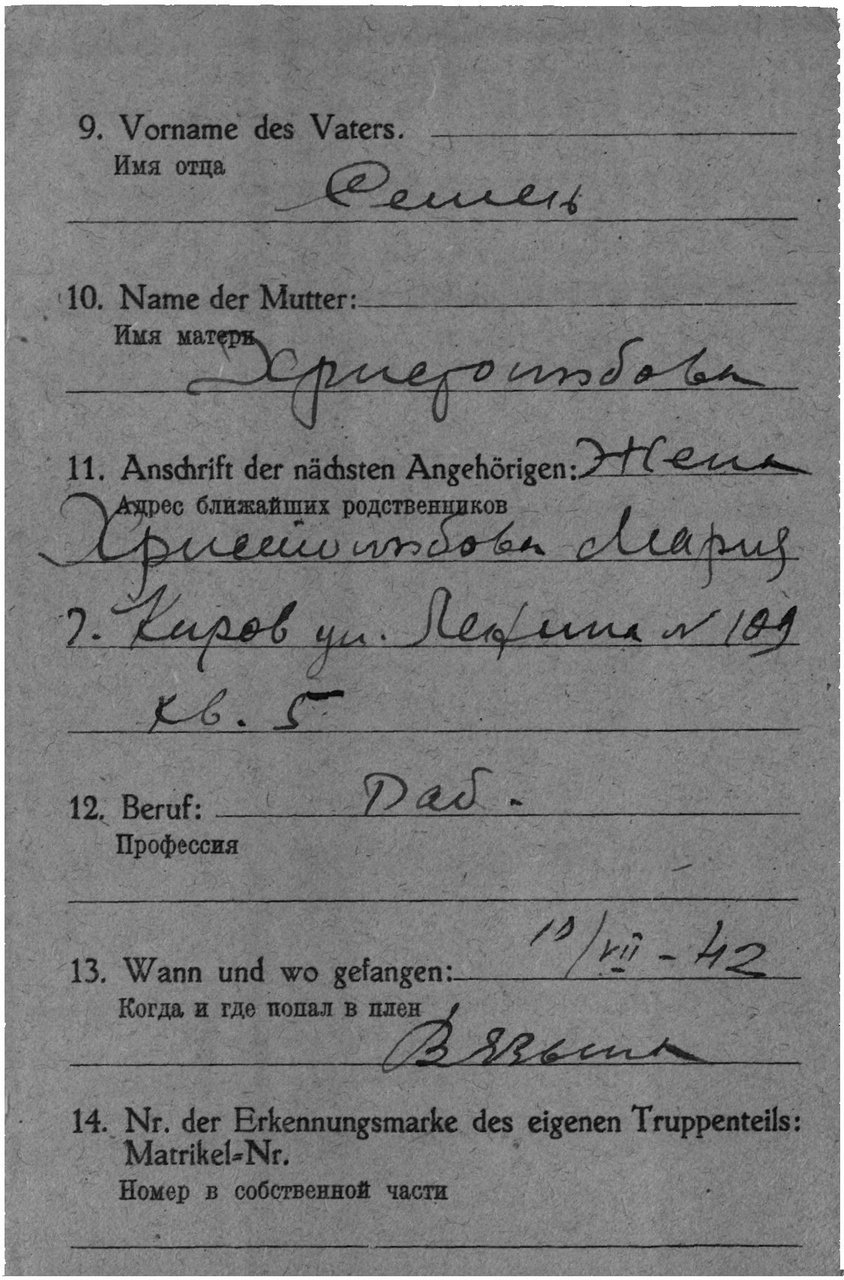 9. Vorname des Vaters.
Имя отца
Семен
10. Name der Mutter:
Имя матери
11. Anschrift der nächsten Angehörigen: Жена
Адрес ближайших родственников
Мария
г. Киров ул. Ленина № 109
кв. 5
12. Beruf: Раб.
Профессия
13. Wann und wo gefangen: 10/VII - 42
Когда и где попал в плен
Вязьма
14. Nr. der Erkennungsmarke des eigenen Truppenteils:
Matrikel-Nr.
Номер в собственной части